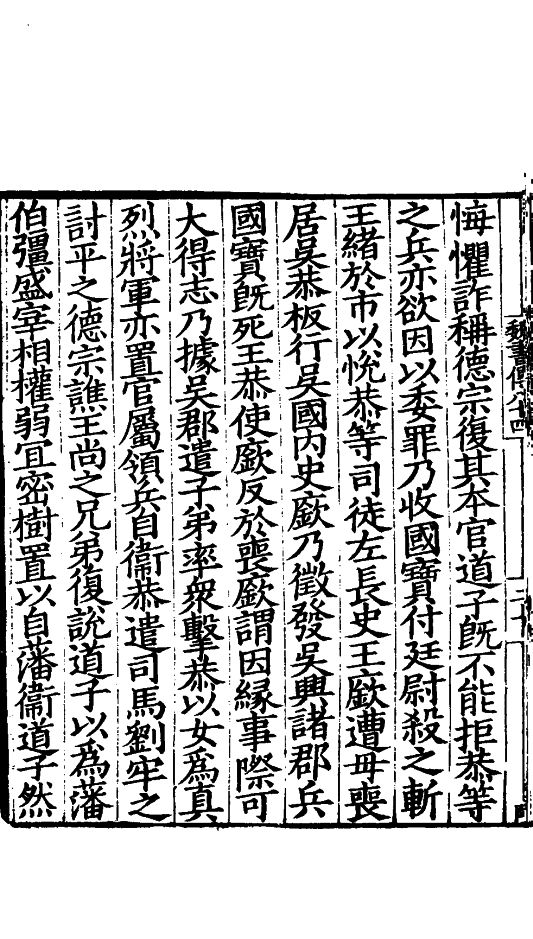 魏書傳八十四
二十
悔懼詐稱德宗復其本官道子旣不能拒恭等
之兵亦欲因以委罪乃收國寶付廷尉殺之斬
王緒於市以悅恭等司徒左長史王廞遭母喪
居吳恭板行吳國內史廞乃徵發吳興諸郡兵
國寶旣死王恭使廞反於喪廞謂因緣事際可
大得志乃據吳郡遣子弟率衆擊恭以女爲真
烈將軍亦置官屬領兵自衞恭遣司馬劉牢之
討平之德宗譙王尚之兄弟復說道子以爲藩
伯彊盛宰相權弱宜密樹置以自藩衞道子然